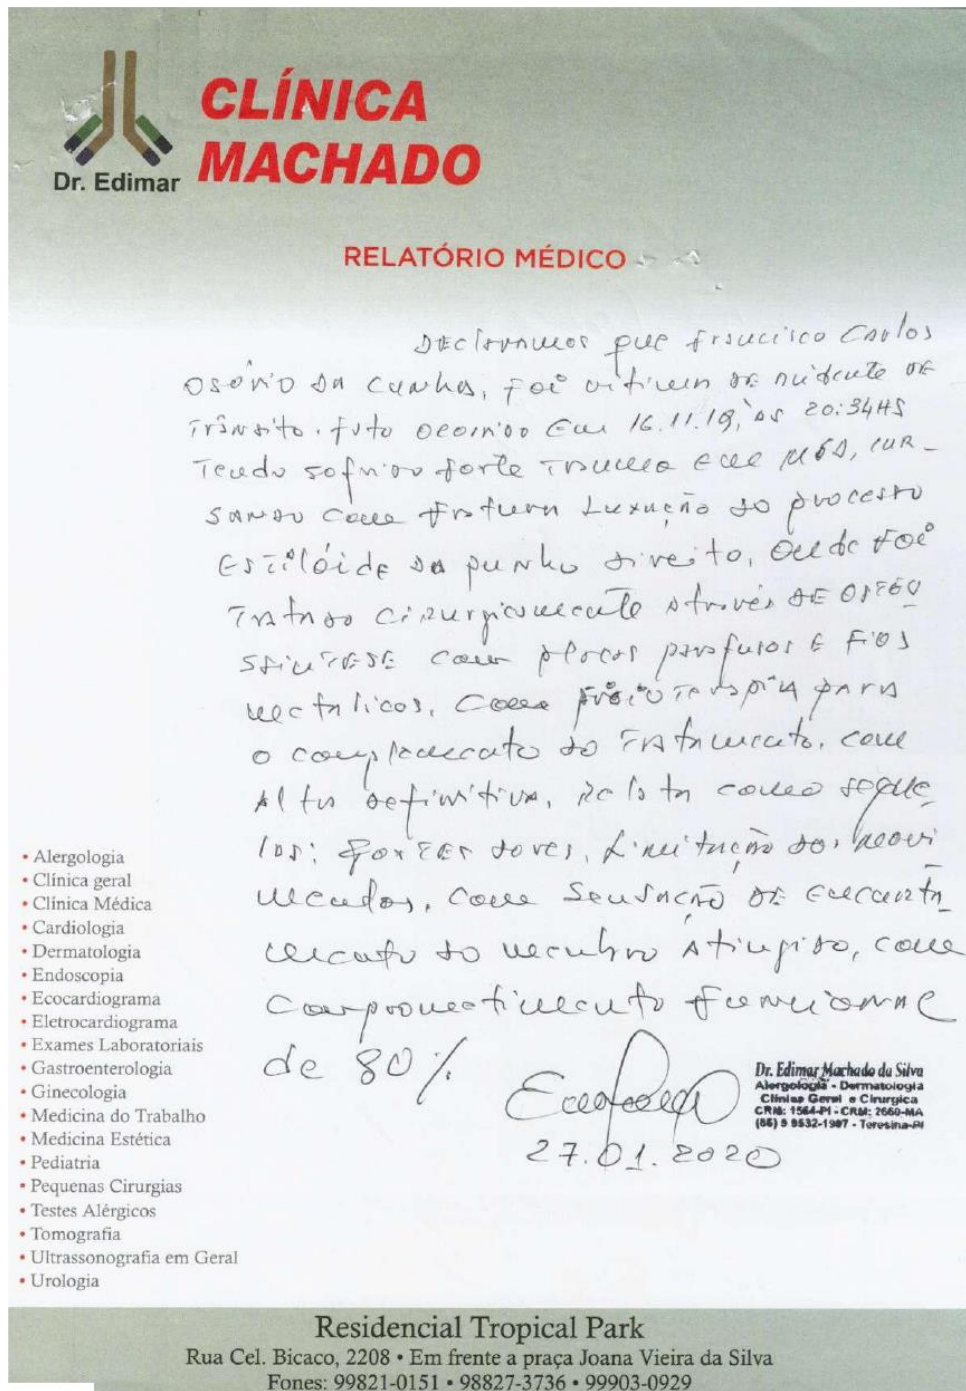 Dr. Edimar
CLÍNICA
MACHADO
RELATÓRIO MÉDICO
Declaramos que Francisco Carlos
Osório da Cunha, foi vítima de acidente de
Trânsito. fato ocorrido em 16.11.19, às 20:34HS
Tendo sofrido forte Trauma em MSD, cur-
sando com fratura Luxação do processo
Estilóide da punho direito, onde foi
Tratado cirurgicamente através de osteo
síntese com placas parafusos e Fios
metalicos. Com fisioterapia para
o complemento do Tratamento. com
Alta definitiva, relata como seque
las: fortes dores, Limitação dos movi
mentos, com sensação de encurta
mento do membro Atingido, com
comprometimento funcional
de 80%
27.01.2020
Dr. Edimar Machado da Silva
Alergologia - Dermatologia
Clínica Geral e Cirurgica
CRM: 1564-PI - CRM: 2660-MA
(86) 9 9532-1987 - Teresina-PI
• Alergologia
• Clínica geral
• Clínica Médica
• Cardiologia
• Dermatologia
• Endoscopia
• Ecocardiograma
• Eletrocardiograma
• Exames Laboratoriais
• Gastroenterologia
• Ginecologia
• Medicina do Trabalho
• Medicina Estética
• Pediatria
• Pequenas Cirurgias
• Testes Alérgicos
• Tomografia
• Ultrassonografia em Geral
• Urologia
Residencial Tropical Park
Rua Cel. Bicaco, 2208 • Em frente a praça Joana Vieira da Silva
Fones: 99821-0151 • 98827-3736 • 99903-0929